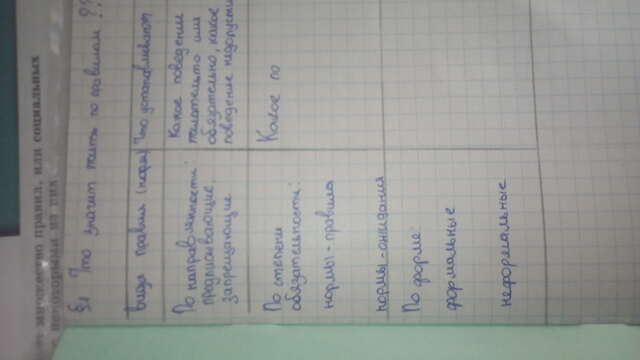 множество правил, или социальных
§1 Что значит жить по правилам ??
Виды правил (норм)
Что устанавливают
По направленности:
предписывающие,
запрещающие
Какое поведение
желательно или
обязательно, какое
поведение недопустимо
По степени
обязательности:
нормы - правила
нормы - ожидания
Какое по
По форме:
формальные
неформальные